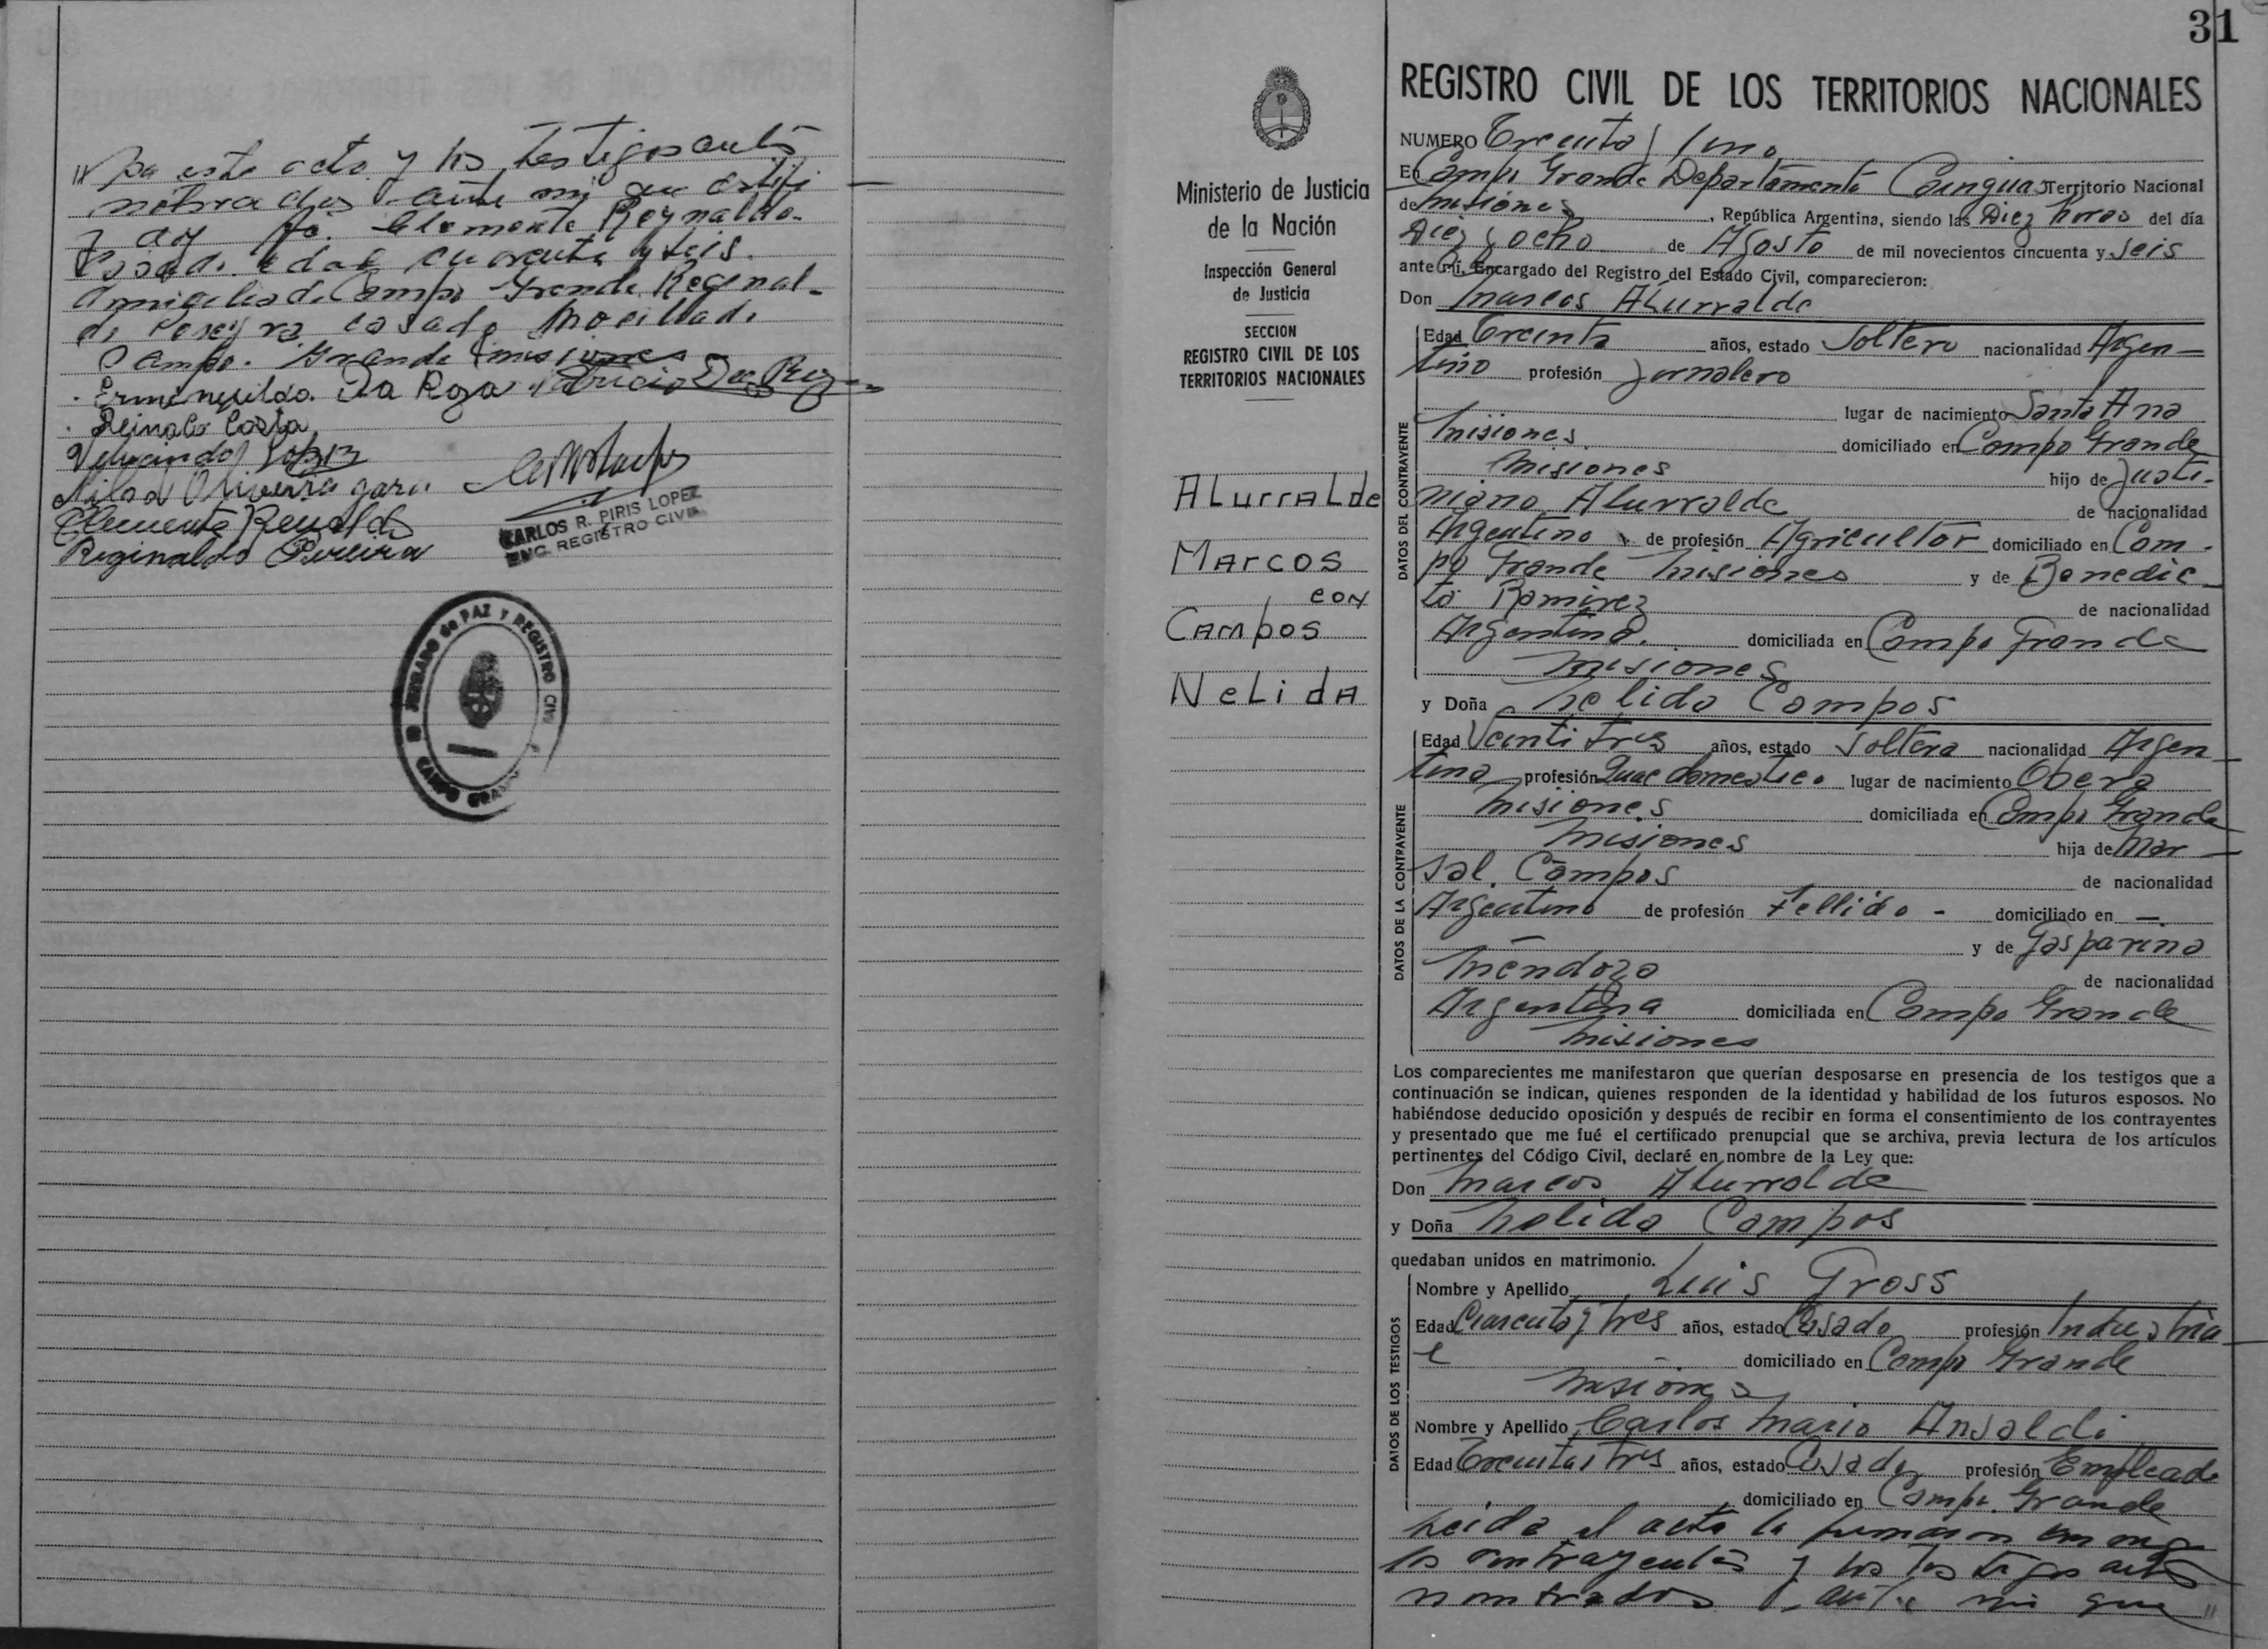 pa este acto y los testigos antes
nobrados ante mi que certifi
y doy fé. Clemente Reynaldo
Casado edad cuarenta y seis.
Domiciliado Campo Grande, Regenal-
do Pereyra casado Domiciliado
Campo Grande Misiones
Ermenegildo Da Roza Patricio Da Roza
Reinaldo Costa
Velucindo Lopez
Nilsa Oliveira gara
Clemente Renaldo
Reginaldo Pereira
CARLOS R. PIRIS LOPEZ
ENC. REGISTRO CIVIL
JUZGADO de PAZ Y REGISTRO CIVIL
CAMPO GRANDE
31
Ministerio de Justicia
de la Nación
Inspección General
de Justicia
SECCION
REGISTRO CIVIL DE LOS
TERRITORIOS NACIONALES
ALurrALde
Marcos
con
Campos
NeLidA
REGISTRO CIVIL DE LOS TERRITORIOS NACIONALES
NUMERO Treinta y uno
En Campo Grande Departamento Cainguas Territorio Nacional
de Misiones, República Argentina, siendo las Diez horas del día
Diez y ocho de Agosto de mil novecientos cincuenta y seis
ante mí, Encargado del Registro del Estado Civil, comparecieron:
Don Marcos Alurralde
DATOS DEL CONTRAYENTE
Edad Treinta años, estado Soltero nacionalidad Argen-
tino profesión Jornalero
lugar de nacimiento Santa Ana
Misiones domiciliado en Campo Grande
Misiones hijo de Justi-
niano Alurralde de nacionalidad
Argentino de profesión Agricultor domiciliado en Cam-
po Grande Misiones y de Benedic-
ta Ramirez de nacionalidad
Argentina. domiciliada en Campo Grande
Misiones
y Doña Nelida Campos
DATOS DE LA CONTRAYENTE
Edad Veinti tres años, estado Soltera nacionalidad Argen
tina profesión Quac domestico lugar de nacimiento Obera
Misiones domiciliada en Campo Grande
Misiones hija de Mar-
sal. Campos de nacionalidad
Argentino de profesión Fellido - domiciliado en -
- y de Gasparina
Mendoza de nacionalidad
Argentina domiciliada en Campo Grande
Misiones
Los comparecientes me manifestaron que querían desposarse en presencia de los testigos que a
continuación se indican, quienes responden de la identidad y habilidad de los futuros esposos. No
habiéndose deducido oposición y después de recibir en forma el consentimiento de los contrayentes
y presentado que me fué el certificado prenupcial que se archiva, previa lectura de los artículos
pertinentes del Código Civil, declaré en nombre de la Ley que:
Don Marcos Alurralde
y Doña Nelida Campos
quedaban unidos en matrimonio.
DATOS DE LOS TESTIGOS
Nombre y Apellido Luis Gross
Edad Cuarenta y tres años, estado Casado profesión Industria
l - domiciliado en Campo Grande
Misiones
Nombre y Apellido Carlos Mario Ansaldi
Edad Treinta i tres años, estado Casado profesión Empleado
domiciliado en Campo Grande
Leida el acta la firmaron con migo
los contrayentes y los testigos antes
nombrados, ante mi que "